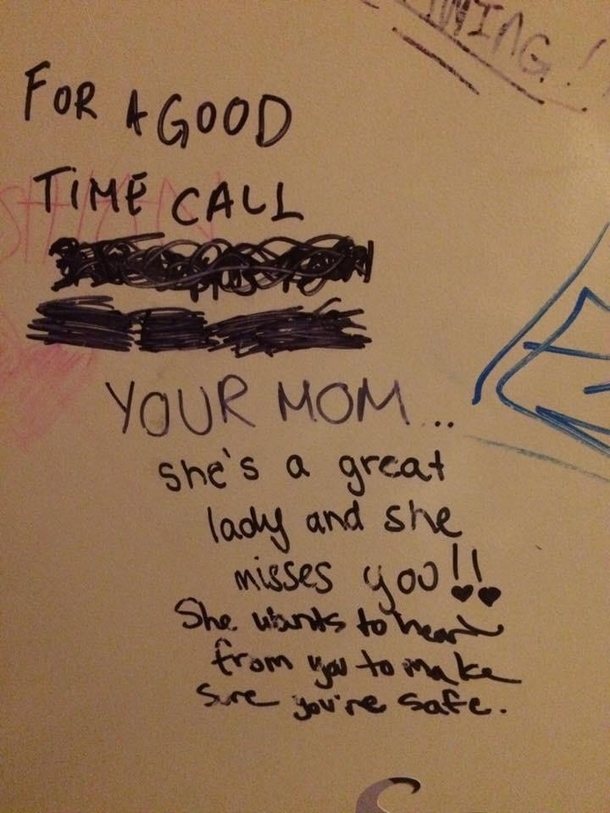 FOR A GOOD
TIME CALL
YOUR MOM...
she's a great
lady and she
misses you!!
She wants to hear
from you to make
sure you're safe.